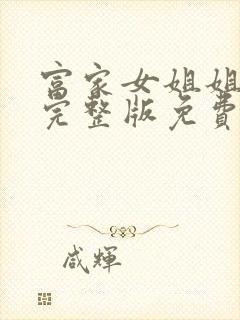 富家女姐姐
完整版免費
咸輝